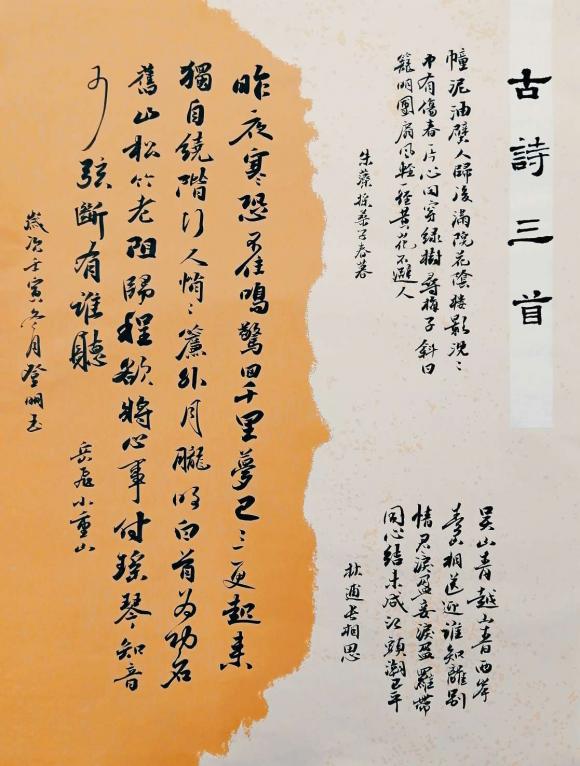 古詩三首
幢泥油壁人歸後滿院花蔭樓影沉々
中有傷春一片心閒穿綠樹尋梅子斜日
籠明團扇風輕一徑黄花不避人
朱藻採桑子春暮
吴山青越山青西岸
青山相送迎誰知離别
情君淚盈妾淚盈羅帶
同心結未成江頭潮已平
林逋長相思
昨夜寒恐不住鳴驚回千里夢已三更起來
獨自繞階行人悄々簾外月朧明白首為功名
舊山松竹老阻歸程欲將心事付瑤琴知音
少弦斷有誰聽
岳飛小重山
歲次壬寅冬月登明玉